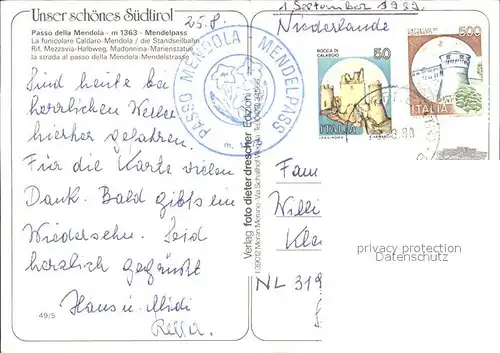 Unser schönes Südtirol
Passo della Mendola - m 1363 - Mendelpass
La funicolare Caldaro-Mendola / die Standseilbahn
Rif. Mezzavia-Halbweg, Madonnina-Marienstatue
la strada al passo della Mendola-Mendelstrasse
25.8.
PASSO MENDOLA - MENDELPASS
m.
1 September 1989
Niederlande
ROCCA DI
CALASCIO
50
ITALIA
500
ITALIA
Sind heute bei
herrlichen Wetter
hierher gefahren.
Für die Karte vielen
Dank. Bald gibts ein
Wiedersehn. Seid
herzlich gegrüßt
Hans u. Midi
49/5
Verlag foto dieter drescher Edizioni
I-39012 Meran/Merano
Fam
Willi
Kle
NL 319
privacy protection
Datenschutz